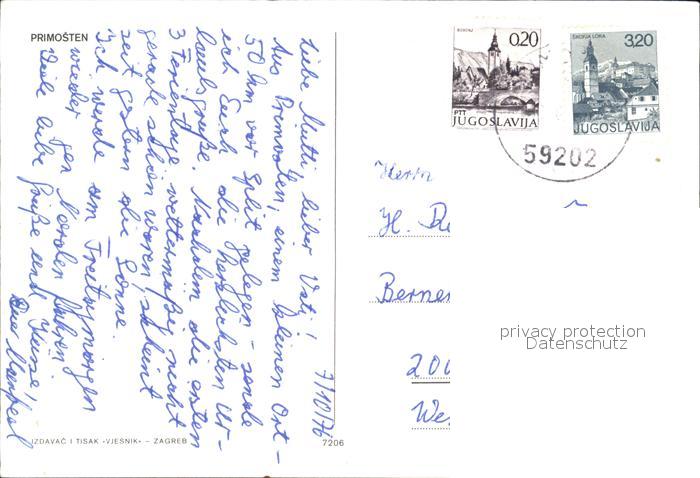 PRIMOŠTEN
7/10/76
Liebe Mutti, lieber Vati!
Aus Primosten, einem kleinen Ort –
50 km vor Split gelegen – sende
ich Euch die herzlichsten Ur-
laubsgrüße. Nachdem die ersten
3 Ferientage wettermäßig nicht
gerade schön waren, scheint
seit gestern die Sonne.
Ich werde am Freitagmorgen
wieder gen Norden fahren.
Viele liebe Grüße und Küsse,
Eure Manfred
IZDAVAČ I TISAK »VJESNIK« – ZAGREB
7206
BOHINJ
0,20
PTT
JUGOSLAVIJA
ŠKOFJA LOKA
3,20
JUGOSLAVIJA
59202
Herrn
H. Be
Berner
200
We
privacy protection
Datenschutz